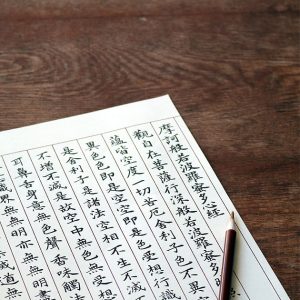 摩訶般若波羅蜜多心経
觀自在菩薩行深般若波羅蜜多
蘊皆空度一切苦厄舍利子色不異
異色色即是空空即是色受想行
是舍利子是諸法空相不生不滅
不增不減是故空中無色無受想
耳鼻舌身意無色聲香味觸
界無無明亦無無明